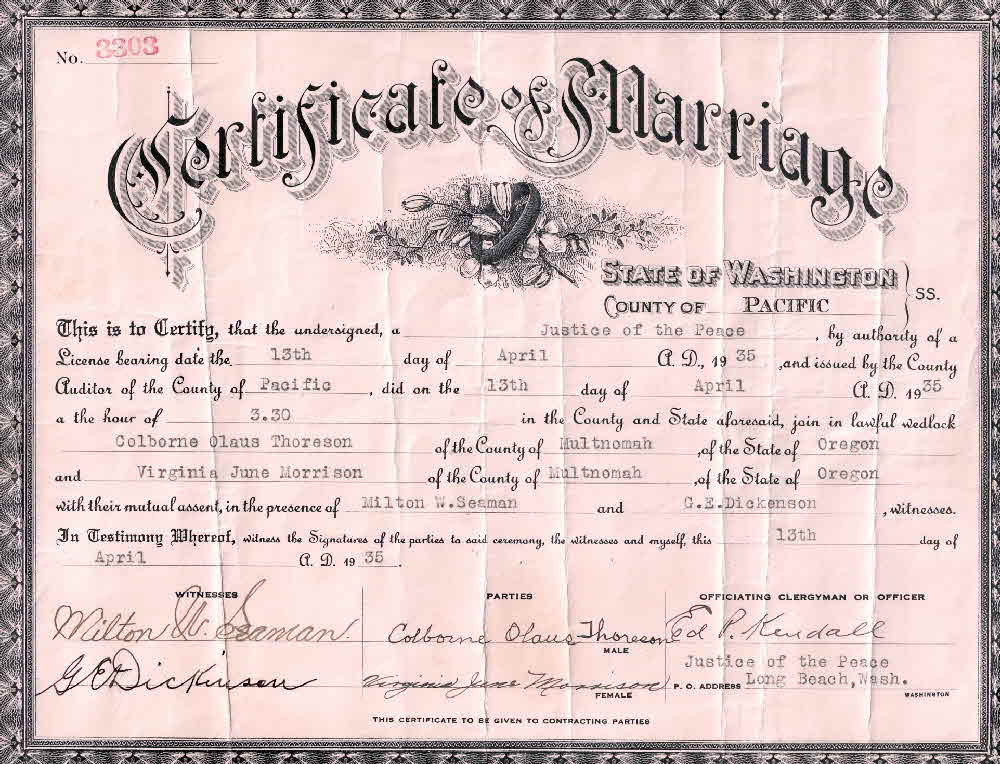 No. 3303
Certificate of Marriage
STATE OF WASHINGTON
COUNTY OF PACIFIC
SS.
This is to Certify, that the undersigned, a Justice of the Peace, by authority of a
License bearing date the 13th day of April A. D., 19 35, and issued by the County
Auditor of the County of Pacific, did on the 13th day of April A. D. 19 35
a the hour of 3.30 in the County and State aforesaid, join in lawful wedlock
Colborne Olaus Thoreson of the County of Multnomah, of the State of Oregon
and Virginia June Morrison of the County of Multnomah, of the State of Oregon
with their mutual assent, in the presence of Milton W. Seaman and G.E.Dickenson, witnesses.
In Testimony Whereof, witness the Signatures of the parties to said ceremony, the witnesses and myself, this 13th day of
April A. D. 19 35.
WITNESSES
Milton W. Seaman.
G E Dickinson
PARTIES
Colborne Olaus Thoreson
MALE
Virginia June Morrison
FEMALE
OFFICIATING CLERGYMAN OR OFFICER
Ed P. Kendall
Justice of the Peace
P. O. ADDRESS Long Beach, Wash.
WASHINGTON
THIS CERTIFICATE TO BE GIVEN TO CONTRACTING PARTIES